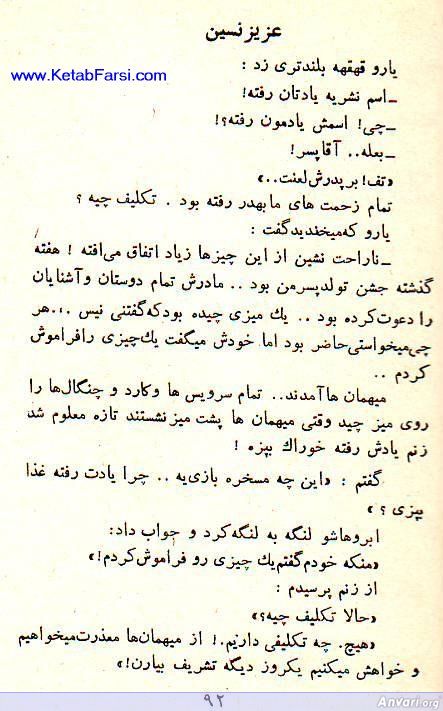 عزیز نسین
یارو قهقهه بلندتری زد :
www.KetabFarsi.com
ـ اسم نشریه یادتان رفته!
ـ چی! اسمش یادمون رفته؟!
ـ بعله.. آقاپسر!
«تف! بر پدرش لعنت..»
تمام زحمت های ما بهدر رفته بود . تکلیف چیه ؟
یارو که میخندید گفت :
ـ ناراحت نشین از این چیزها زیاد اتفاق می‌افته ! هفته
گذشته جشن تولد پسر من بود .. مادرش تمام دوستان و آشنایان
را دعوت کرده بود .. یك میزی چیده بود که گفتنی نیس ... هر
چی میخواستی حاضر بود اما خودش میگفت یك چیزی را فراموش
کردم ..
میهمان ها آمدند.. تمام سرویس ها و کارد و چنگال‌ها را
روی میز چید وقتی میهمان ها پشت میز نشستند تازه معلوم شد
زنم یادش رفته خوراك بپزه !
گفتم : «این چه مسخره بازی‌یه .. چرا یادت رفته غذا
بپزی ؟ »
ابروهاشو لنگه به لنگه کرد و جواب داد:
«منکه خودم گفتم یك چیزی رو فراموش کردم!»
از زنم پرسیدم :
«حالا تکلیف چیه؟»
«هیچ. چه تکلیفی داریم.! از میهمان‌ها معذرت میخواهیم
و خواهش میکنیم یکروز دیگه تشریف بیارن!»
۹۲
Anvari.org